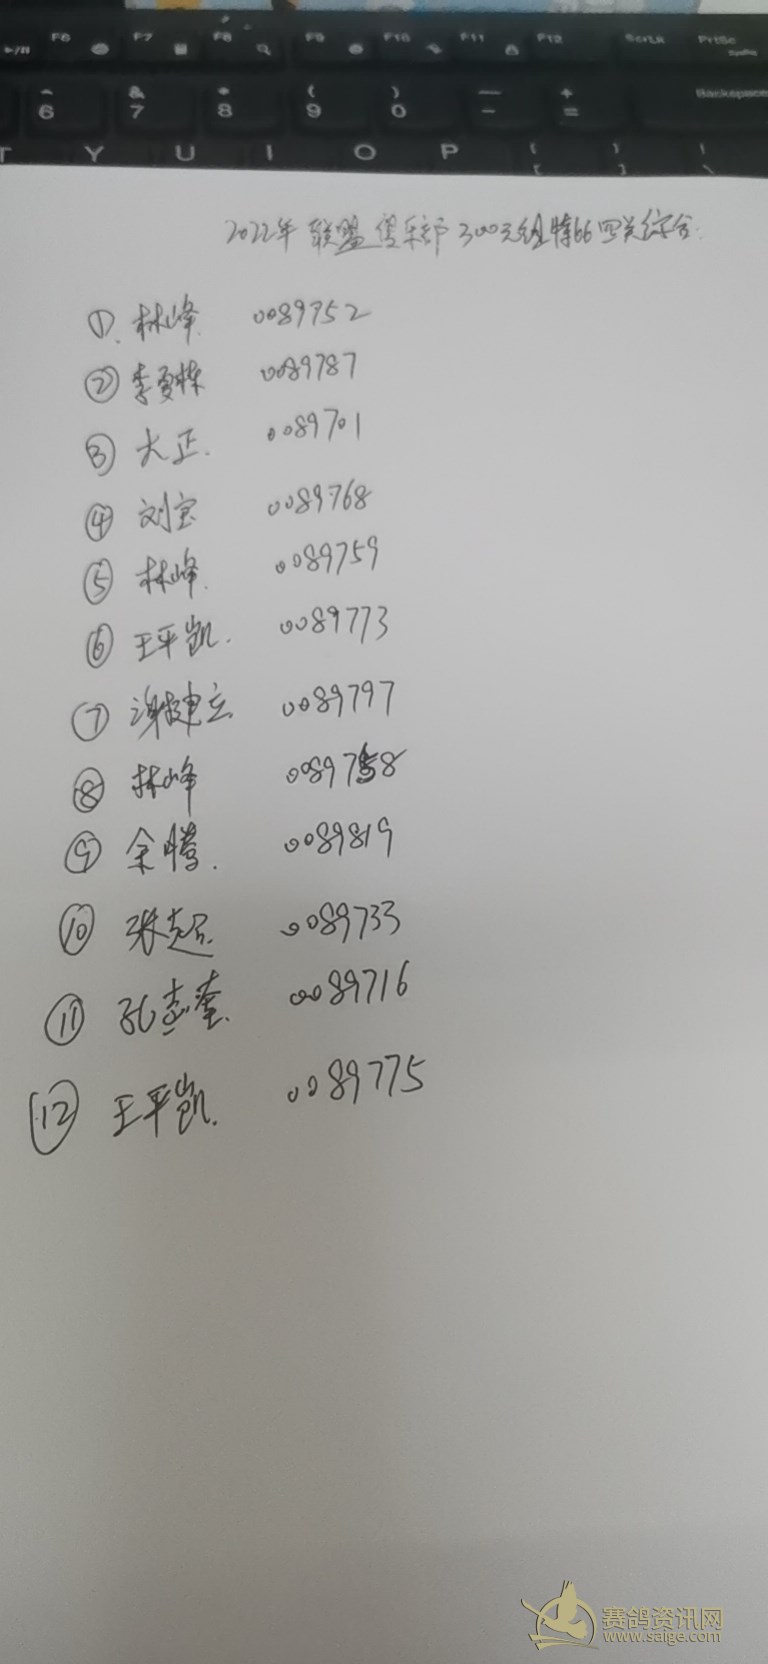 F6 F7 F8 F9 F10 F11 F12 ScrLk PrtSc
^ & * ( ) — + Backspace
6 7 8 9 0 - =
T Y U I O P { } |
[ ] \
2022年 联盟俱乐部 300元组特66四关综合
① 林峰 0089752
② 李夏栋 0089787
③ 大正. 0089701
④ 刘宝 0089768
⑤ 林峰. 0089759
⑥ 王平凯. 0089773
⑦ 谢建立 0089797
⑧ 林峰 0089758
⑨ 余腾. 0089819
⑩ 张超. 0089733
⑪ 孔志奎. 0089716
⑫ 王平凯. 0089775
赛鸽资讯网
www.saige.com